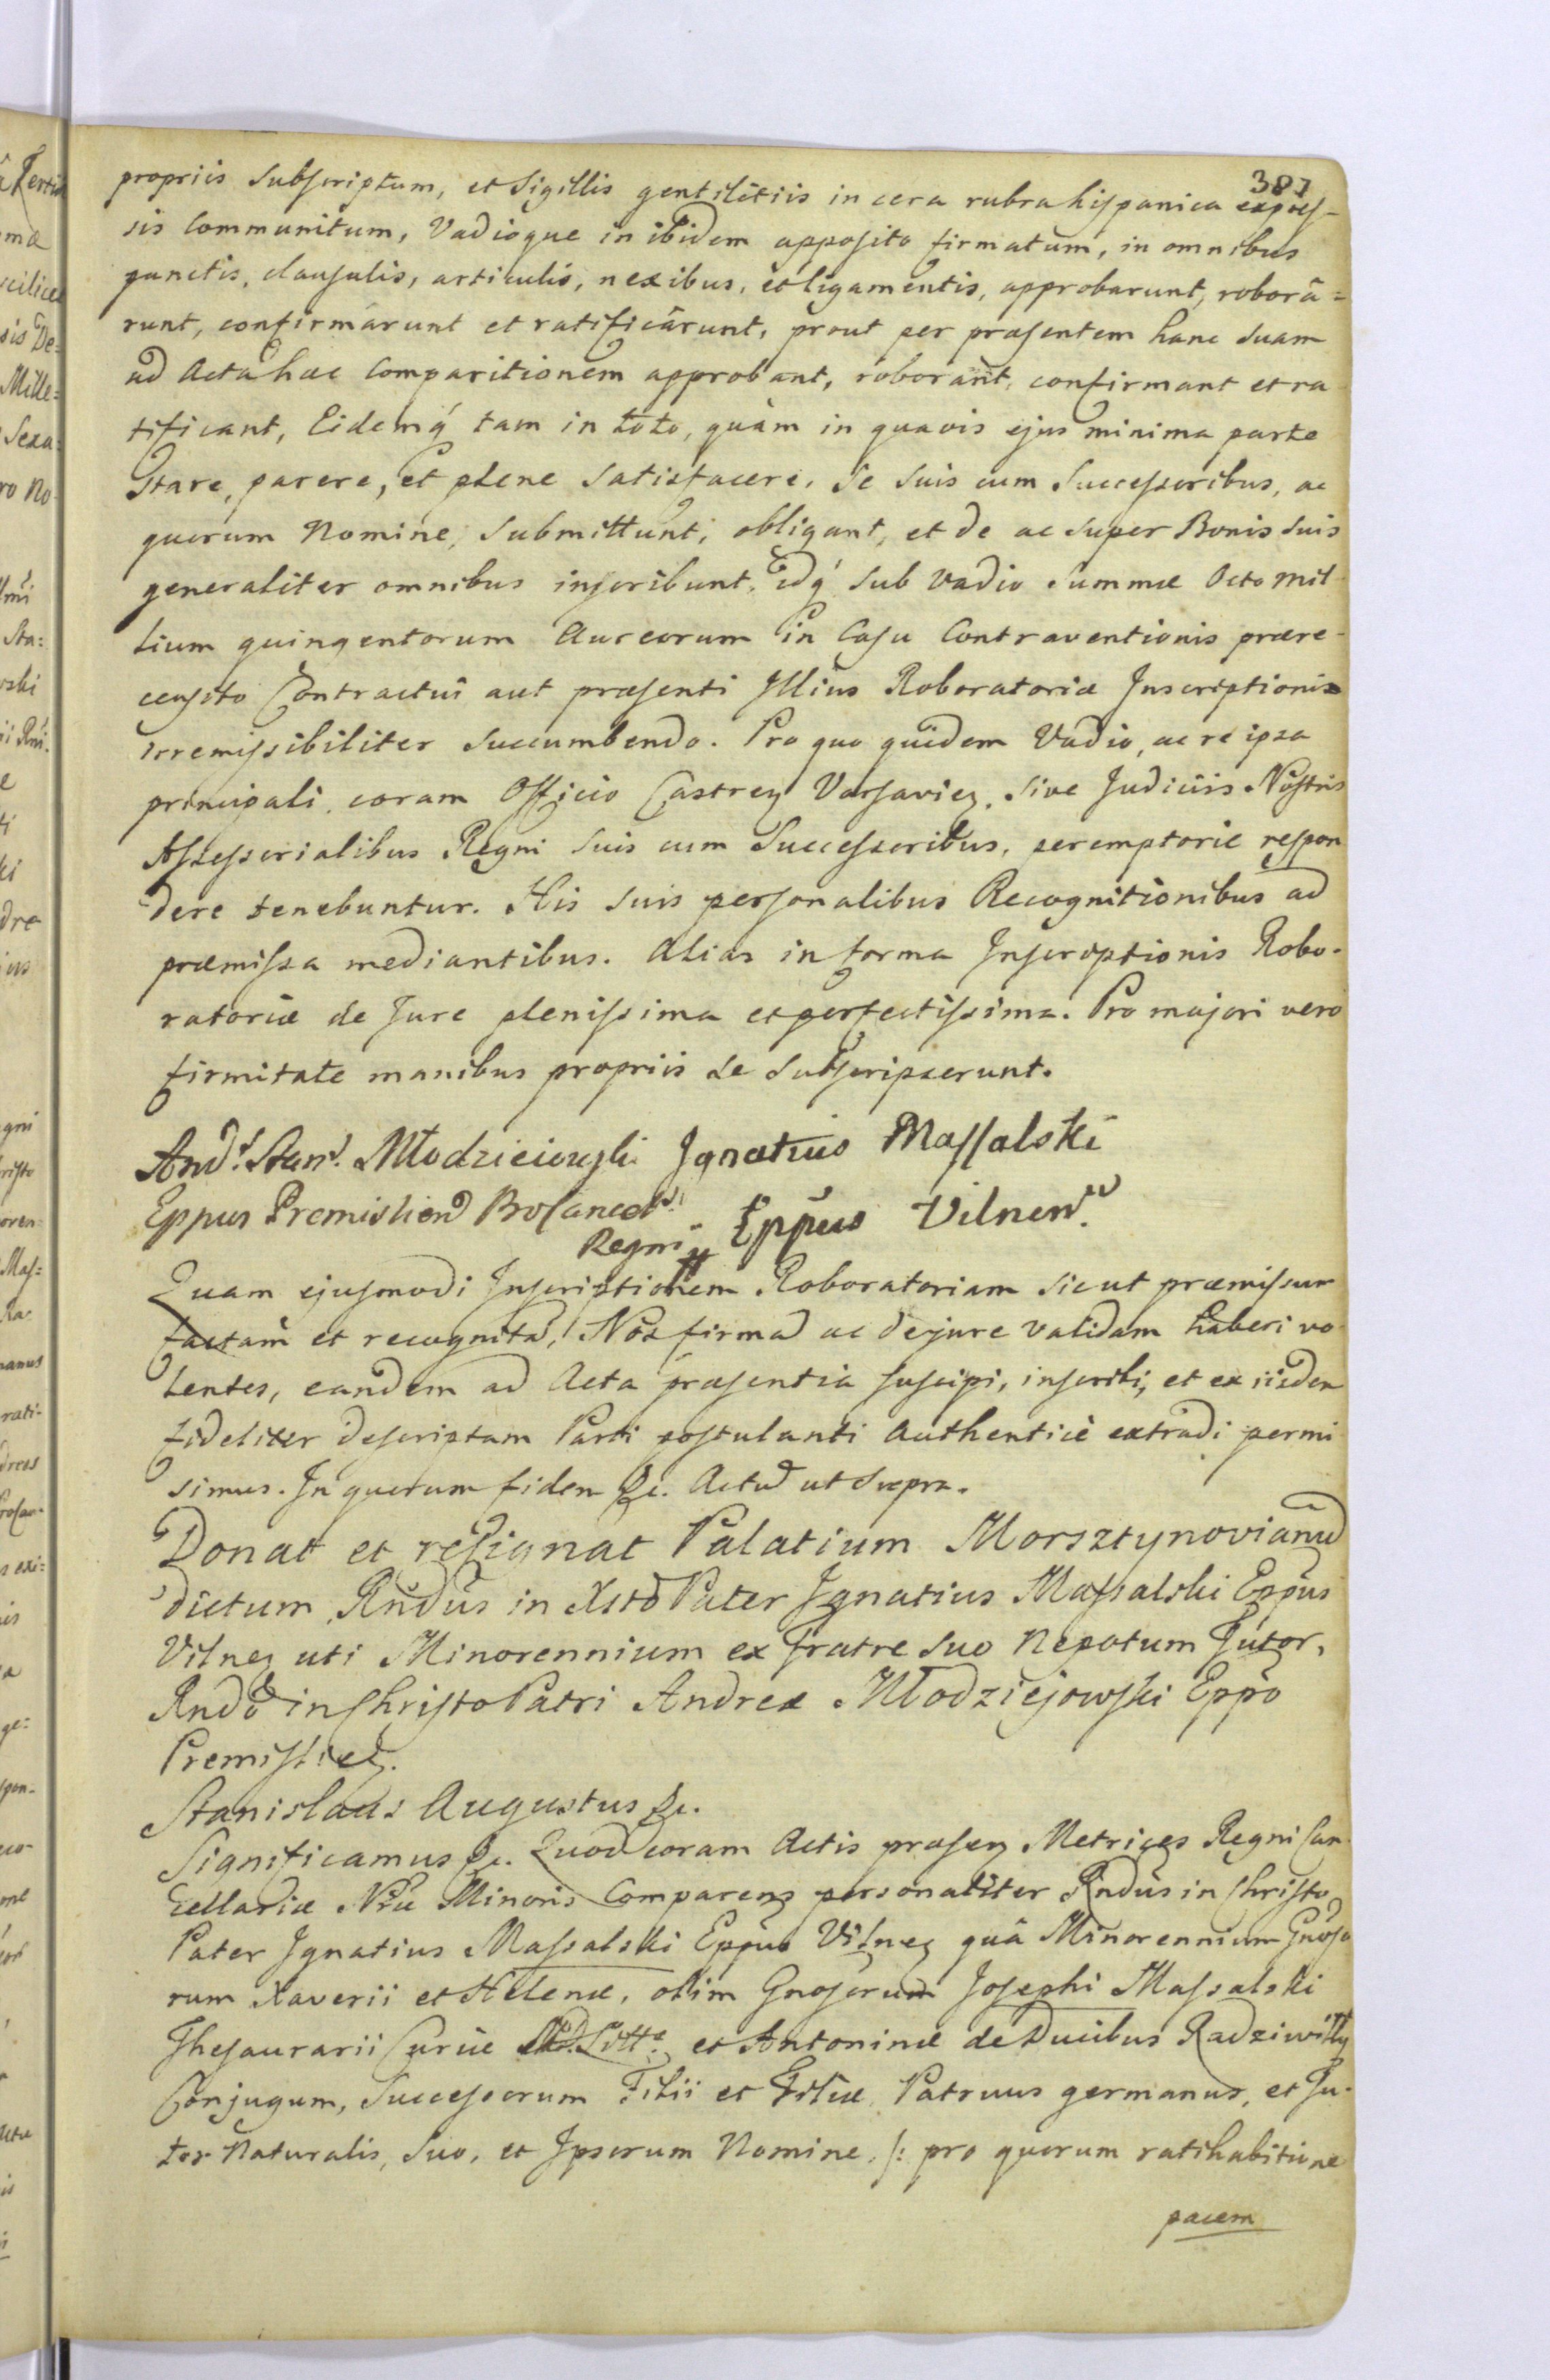 387
propriis Subscriptum, et Sigillis gentilitiis in cera rubra hispanica expres-
sis Communitum, Vadioque in ibidem apposito firmatum, in omnibus
punctis, clausulis, articulis, nexibus, et ligamentis, approbarunt, roborâ=
runt, confirmârunt et ratificârunt, prout per præsentem hanc suam
ad Acta hæc Comparitionem approbant, roborant, confirmant et ra
tificant, Eidemq́ tam in toto, quàm in quavis ejus minima parte
Stare, parere, et plene Satisfacere, Se Suis cum Successoribus, ac
quorum Nomine, Submittunt, obligant, et de ac Super Bonis Suis
generaliter omnibus inscribunt, idq́ Sub Vadio Summæ Octo mil-
lium quingentorum Aureorum in Casu Contraventionis prære-
censito Contractui aut præsenti Illius Roboratoriæ Inscriptionis
irremissibiliter Succumbendo. Pro quo quidem Vadio, ac re ipsa
principali, coram Officio Castreŋ Varsavieŋ, Sive Judiciis Nostris
Assessorialibus Regni Suis cum Successoribus, peremptorie respon
dere tenebuntur. His Suis personalibus Recognitionibus ad
præmissa mediantibus. Alias in forma Inscriptionis Robo-
ratoriæ de Jure plenissima et perfectissima. Pro majori vero
firmitate manibus propriis Se Subscripserunt.
And: Stan: Młodzieiowski Ignatius Massalski
Eppus Premislien Procancel:
Regni Eppus Vilnen:
Quam ejusmodi Inscriptionem Roboratoriam sicut præmissum
factam et recognitā, Nos firmā ac de jure validam haberi vo
lentes, eandem ad Acta præsentia suscipi, inscribi, et ex iisdem
fideliter descriptam Parti postulanti Authenticè extradi permi
simus. In quorum fidem &c. Actū ut Supra.
Donat et resignat Palatium Morsztynovianū
dictum, Rndus in Xsto Pater Ignatius Massalski Eppus
Vilneŋ uti Minorennium ex fratre Suo Nepotum Tutor,
Rndo in Christo Patri Andreæ Młodziejowski Eppo
Premislieŋ.
Stanislaus Augustus &c.
Significamus &c. Quod coram Actis præseŋ Metrices Regni Can
cellariæ Nræ Minoris Comparens personaliter Rndus in Christo
Pater Ignatius Massalski Eppus Vilneŋ quâ Minorennium Gnoso
rum Xaverii et Helenæ, olim Gnosorum Josephi Massalski
Thesaurarii Curiæ M.D. Litt. et Antoninæ de Ducibus Radziwiłły
Conjugum, Successorum Filii et Filiæ, Patruus germanus, et Tu-
tor Naturalis, Suo, et Ipsorum Nomine, /: pro quorum ratihabitione
pacem